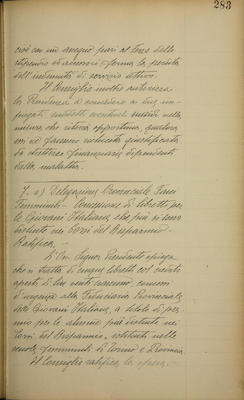 283
cioè con un assegno pari al terzo dello
stipendio ed accessori, ferma la perdita
dell'indennità di servizio attivo.
Il Consiglio inoltre autorizza
la Presidenza a concedere ai due im-
piegati suddetti eventuali sussidi nella
misura che riterrà opportuna, qualora
ciò ne fossero richiesti, giustificata
da strettezze finanziarie dipendenti
dalla malattia.
7. a) Delegazione Provinciale Fasci
Femminili - Concessione di libretti per
le Giovani Italiane, che più si sono
distinte nei Corsi del Risparmio.
Ratifica. -
L'On. Signor Presidente spiega
che si tratta di cinque libretti col credito
aperto di lire cento ciascuno, concessi
d'urgenza alla Fiduciaria Provinciale
delle Giovani Italiane, a titolo di pre-
mio per le alunne più distinte nei
Corsi del Risparmio, istituiti nelle
scuole femminili di Torino e Provincia.
Il Consiglio ratifica la spesa.